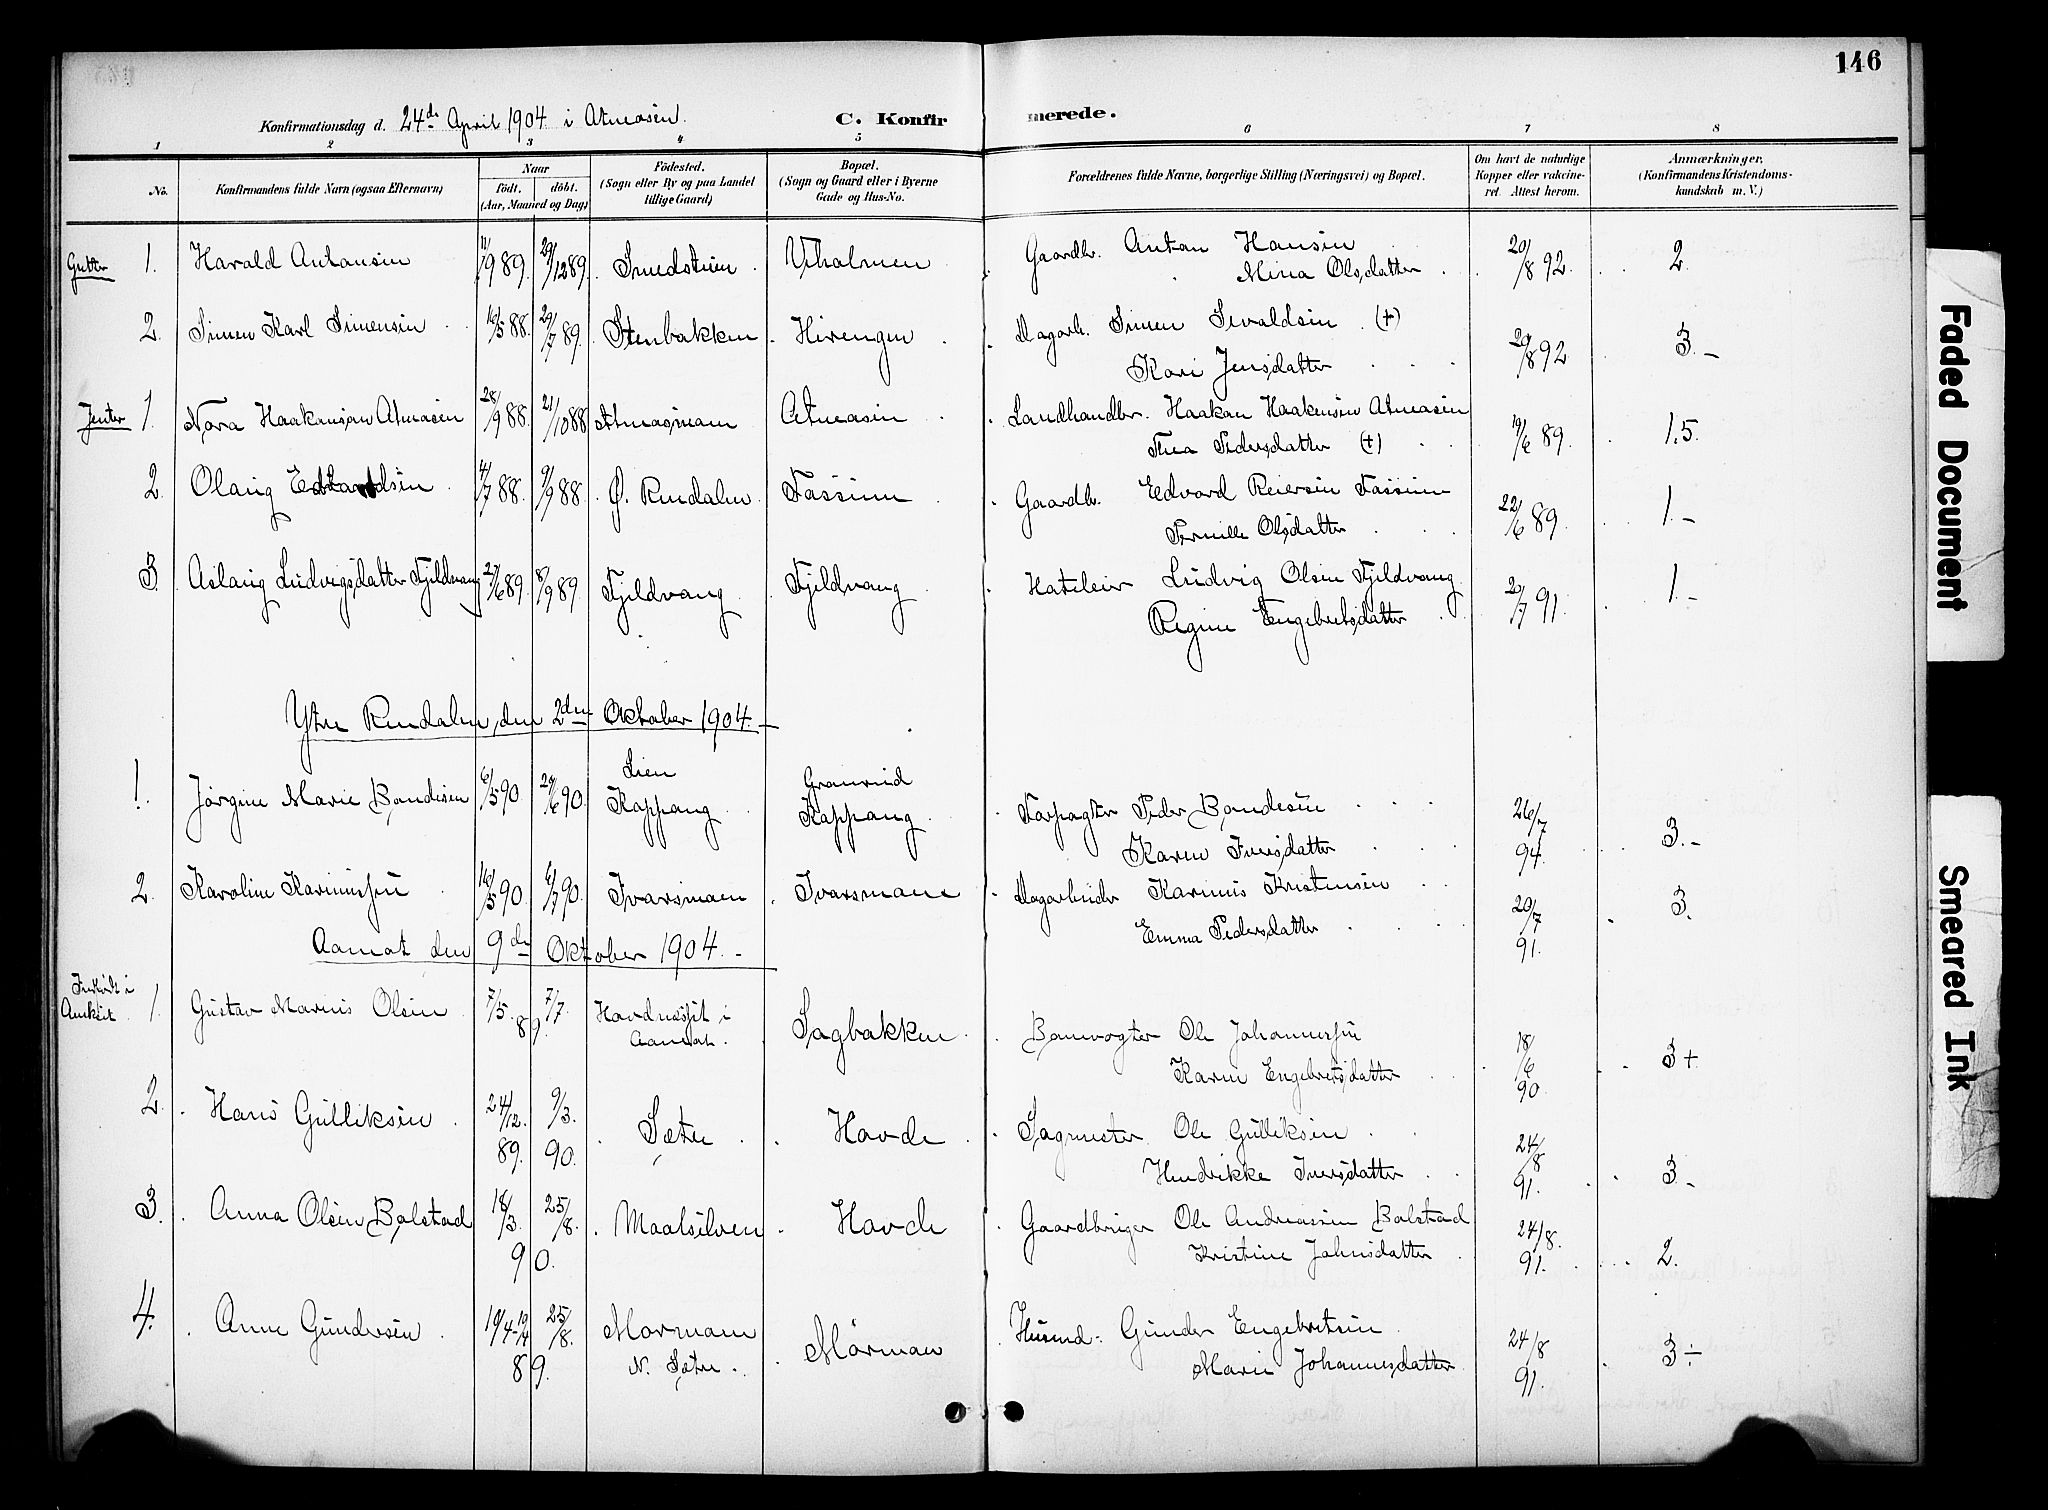 146
Konfirmationsdag d. 24de April 1904 i Atneosen. C. Konfirmerede.
1 2 3 4 5 6 7 8
No. Konfirmandens fulde Navn (ogsaa Efternavn) Naar født. døbt. (Aar, Maaned og Dag) Fødested. (Sogn eller By og paa Landet tillige Gaard) Bopæl. (Sogn og Gaard eller i Byerne Gade og Hus-No. Forældrenes fulde Navne, borgerlige Stilling (Næringsvei) og Bopæl. Om havt de naturlige Kopper eller vaccineret. Attest herom. Anmærkninger. (Konfirmandens Kristendomskundskab m. V.)
Gutter 1. Harald Antonsen 11/9 89. 29/12 89. Smedstuen Gaardb. Anton Hansen 20/8 92. 2.
Mina Olsdatter
2. Simen Karl Simensen 16/5 88. 29/7 89. Stenbakken Hirengen Dagarb. Simen Sivaldsen (+) 29/8 92 3.-
Kari Jensdatter
Jenter 1. Nora Haakonsen Atneosen 28/9 88. 21/10 88 Atneosen Landhandler. Haakon Haakensen Atneosen 19/6 89. 1,5.
Thea Pedersdatter (+)
2. Olaug Edvardsen 4/7 88. 9/9 88. Ø. Rendalen Fossum Gaardb. Edvard Reiersen Fossum 22/6 89. 1.-
Pernille Olsdatter
3. Aslaug Ludvigsdatter Fjeldvang 27/6 89. 8/9 89. Fjeldvang Fjeldvang Hateleier Ludvig Olsen Fjeldvang 29/7 91. 1.-
Regine Engebretsdatter
Ytre Rendalen, den 2den Oktober 1904.-
1. Jørgine Marie Bondesen 6/5 90. 29/6 90. Lien Koppang Granrud Koppang Forpagter Peder Bondesen 26/7 94. 3.-
Karen Iversdatter
2. Karoline Kariniussen 16/5 90. 6/7 90. Ivarsmoen Ivarsmoen Dagarbeider Karinus Kristensen 20/7 91. 3.
Emma Pedersdatter
Aamot den 9de Oktober 1904.-
1. Gustav Marius Olsen 7/5. 7/7. 89. Aamot. Sagbakken Banevogter Ole Johannessen 18/6 90 3+
Karen Engebretsdatter
2. Hans Gulliksen 24/12. 89. 9/3. 90. Sætre Hovde Sagmester Ole Gulliksen 24/8 91. 3-
Hendrikke Iversdatter
3. Anna Olsen Bolstad 18/3. 25/8. 90. Maalselven Hovde Gaardbruger Ole Andreassen Bolstad 24/8. 91. 2.
Kristine Johnsdatter
4. Anne Gundersen 19/4 25/8. 89. Mormoen N. Sætre. Mørmoen Husmd: Gunder Engebretsen 24/8 91. 3÷
Marie Johannesdatter
Faded Document
Smeared Ink